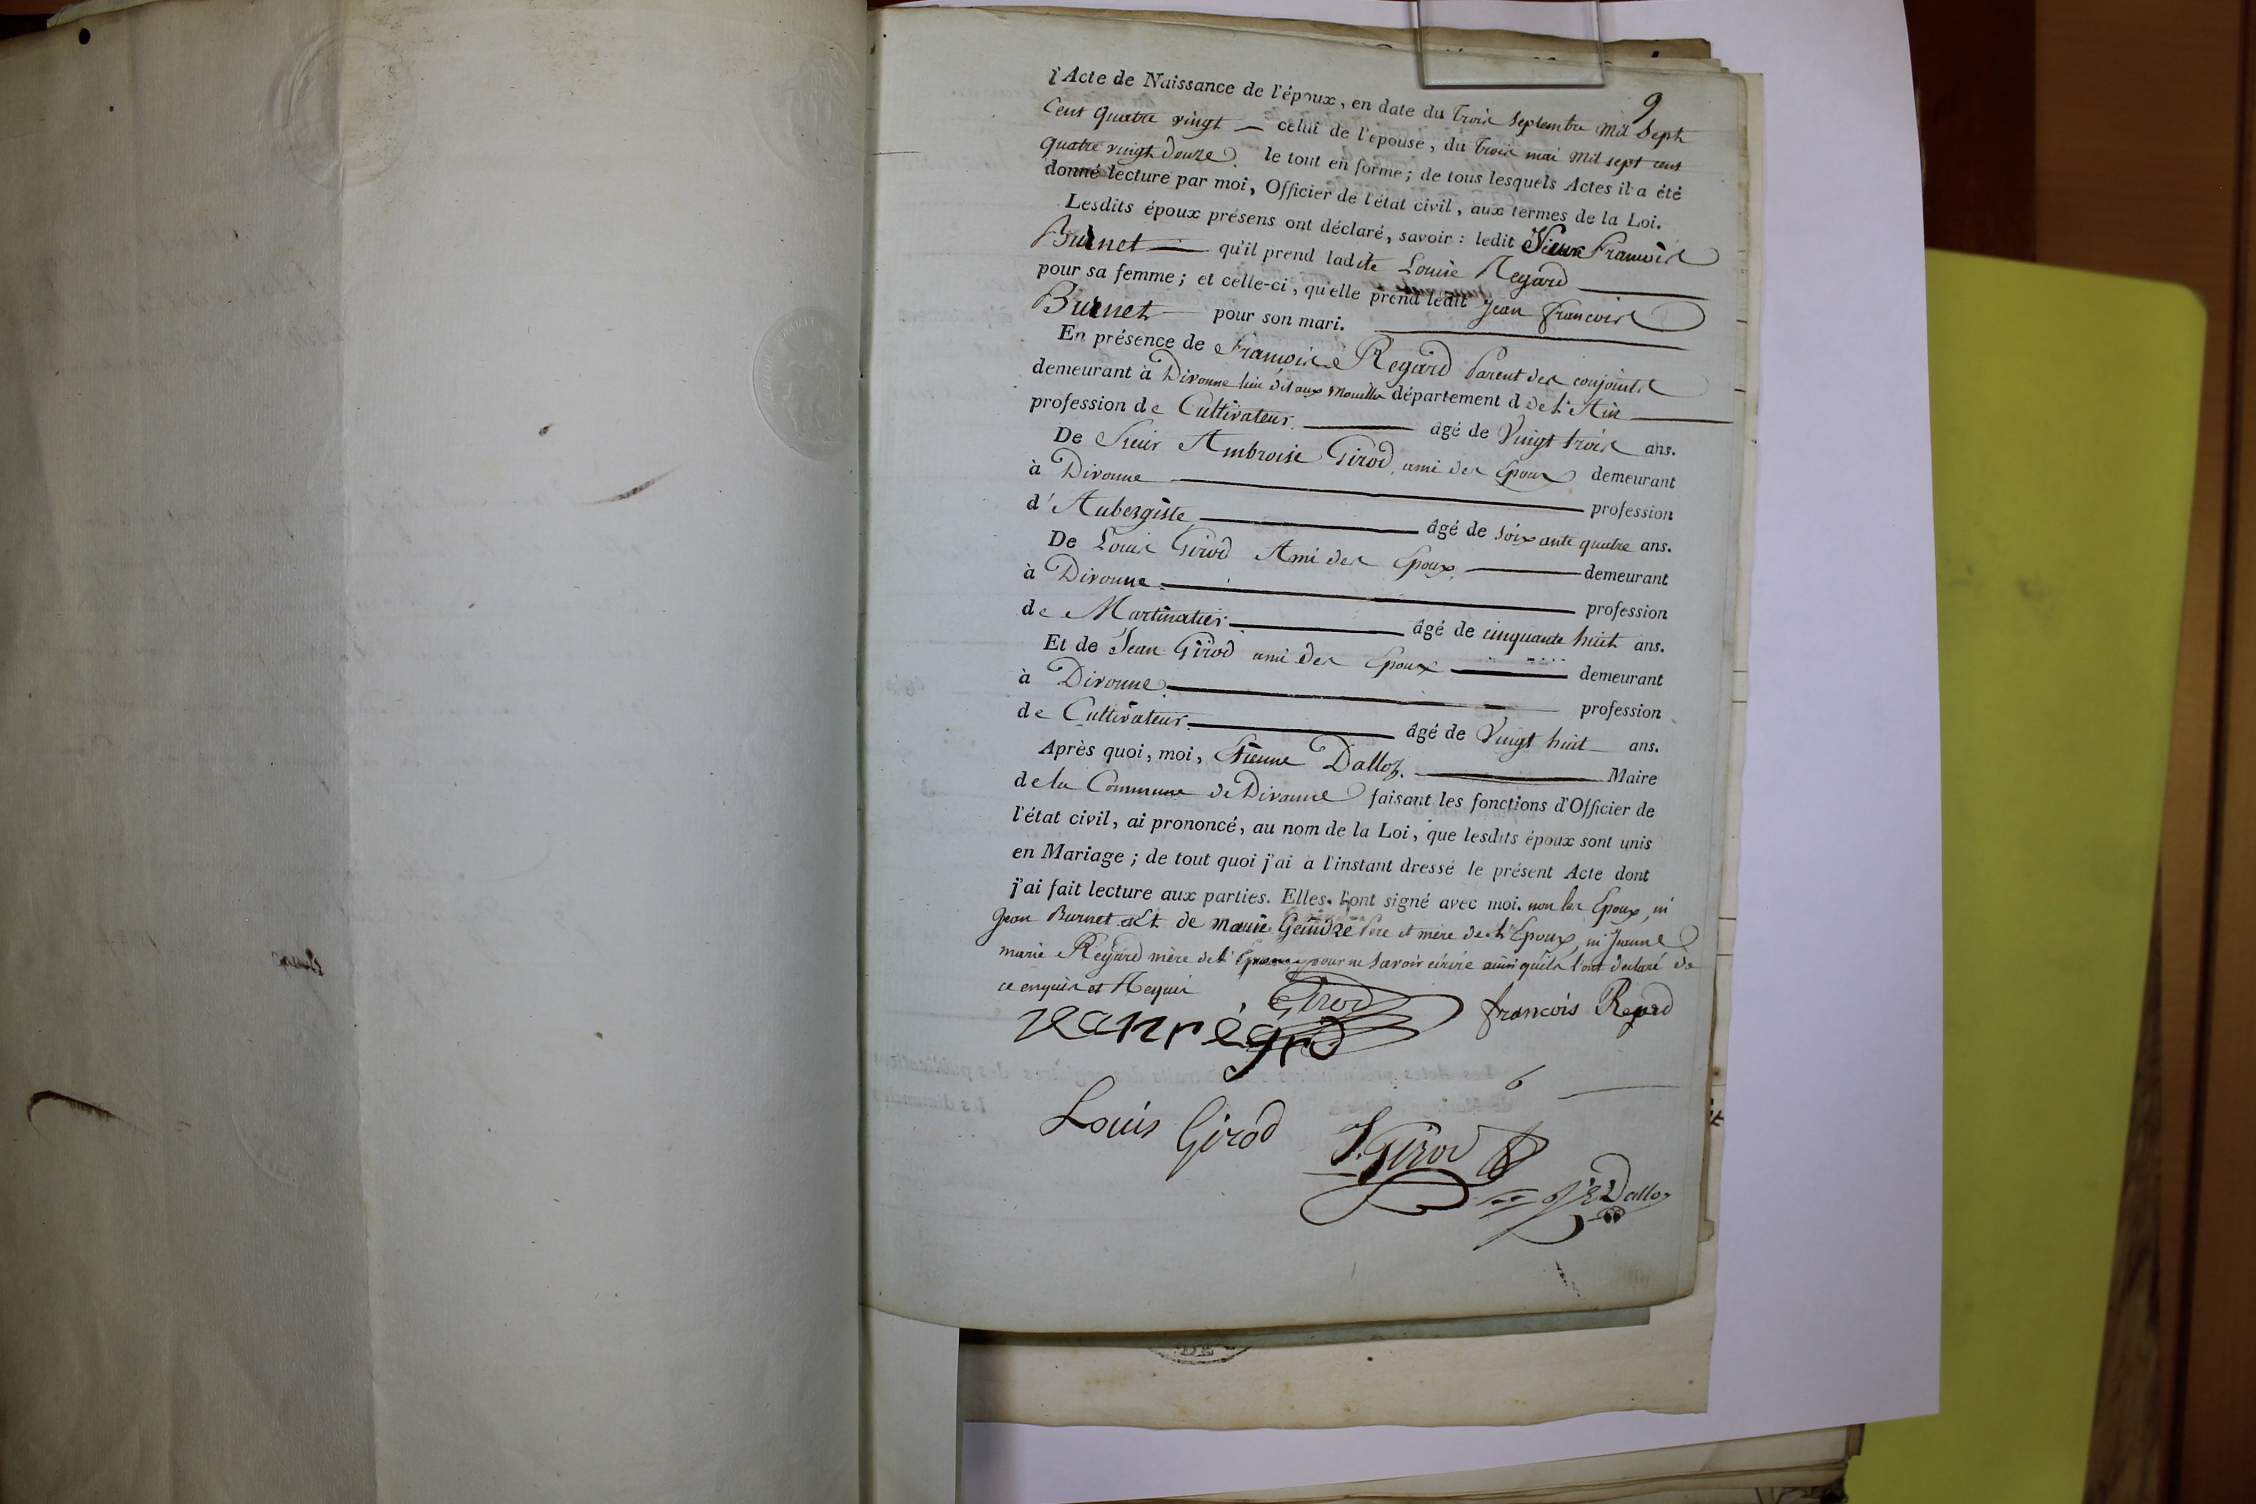 9
l'Acte de Naissance de l'époux, en date du Trois Septembre Mil Sept
Cent Quatre vingt — celui de l'épouse, du Trois mai Mil sept cent
quatre vingt douze. le tout en forme ; de tous lesquels Actes il a été
donné lecture par moi, Officier de l'état civil, aux termes de la Loi.
Lesdits époux présens ont déclaré, savoir : ledit Jean François
Burnet — qu'il prend ladite Louise Regard —
pour sa femme ; et celle-ci, qu'elle prend ledit Jean François
Burnet — pour son mari. —
En présence de François Regard Parent des conjoints
demeurant à Divonne lieu dit aux Mouilles département d de l'Ain —
profession de Cultivateur. — âgé de Vingt trois ans.
De Sieur Ambroise Girod, ami des Epoux demeurant
à Divonne — profession
d'Aubergiste — âgé de soixante quatre ans.
De Louis Girod Ami des Epoux, — demeurant
à Divonne — profession
de Martinatier — âgé de cinquante huit ans.
Et de Jean Girod ami des Epoux — demeurant
à Divonne — profession
de Cultivateur — âgé de Vingt huit ans.
Après quoi, moi, Etienne Dalloz. — Maire
de la Commune de Divonne faisant les fonctions d'Officier de
l'état civil, ai prononcé, au nom de la Loi, que lesdits époux sont unis
en Mariage ; de tout quoi j'ai à l'instant dressé le présent Acte dont
j'ai fait lecture aux parties. Elles l'ont signé avec moi. non les Epoux, ni
Jean Burnet et de Marie Gendre Père et mère de l'Epoux, ni Jeanne
marie Regard mère de l'Epouse, pour ne savoir écrire ainsi qu'ils l'ont déclaré de
ce enquis et Requis
Girod
françois Regard
Jean régrd
Louis Girod
J. Girod
Dalloz
DE